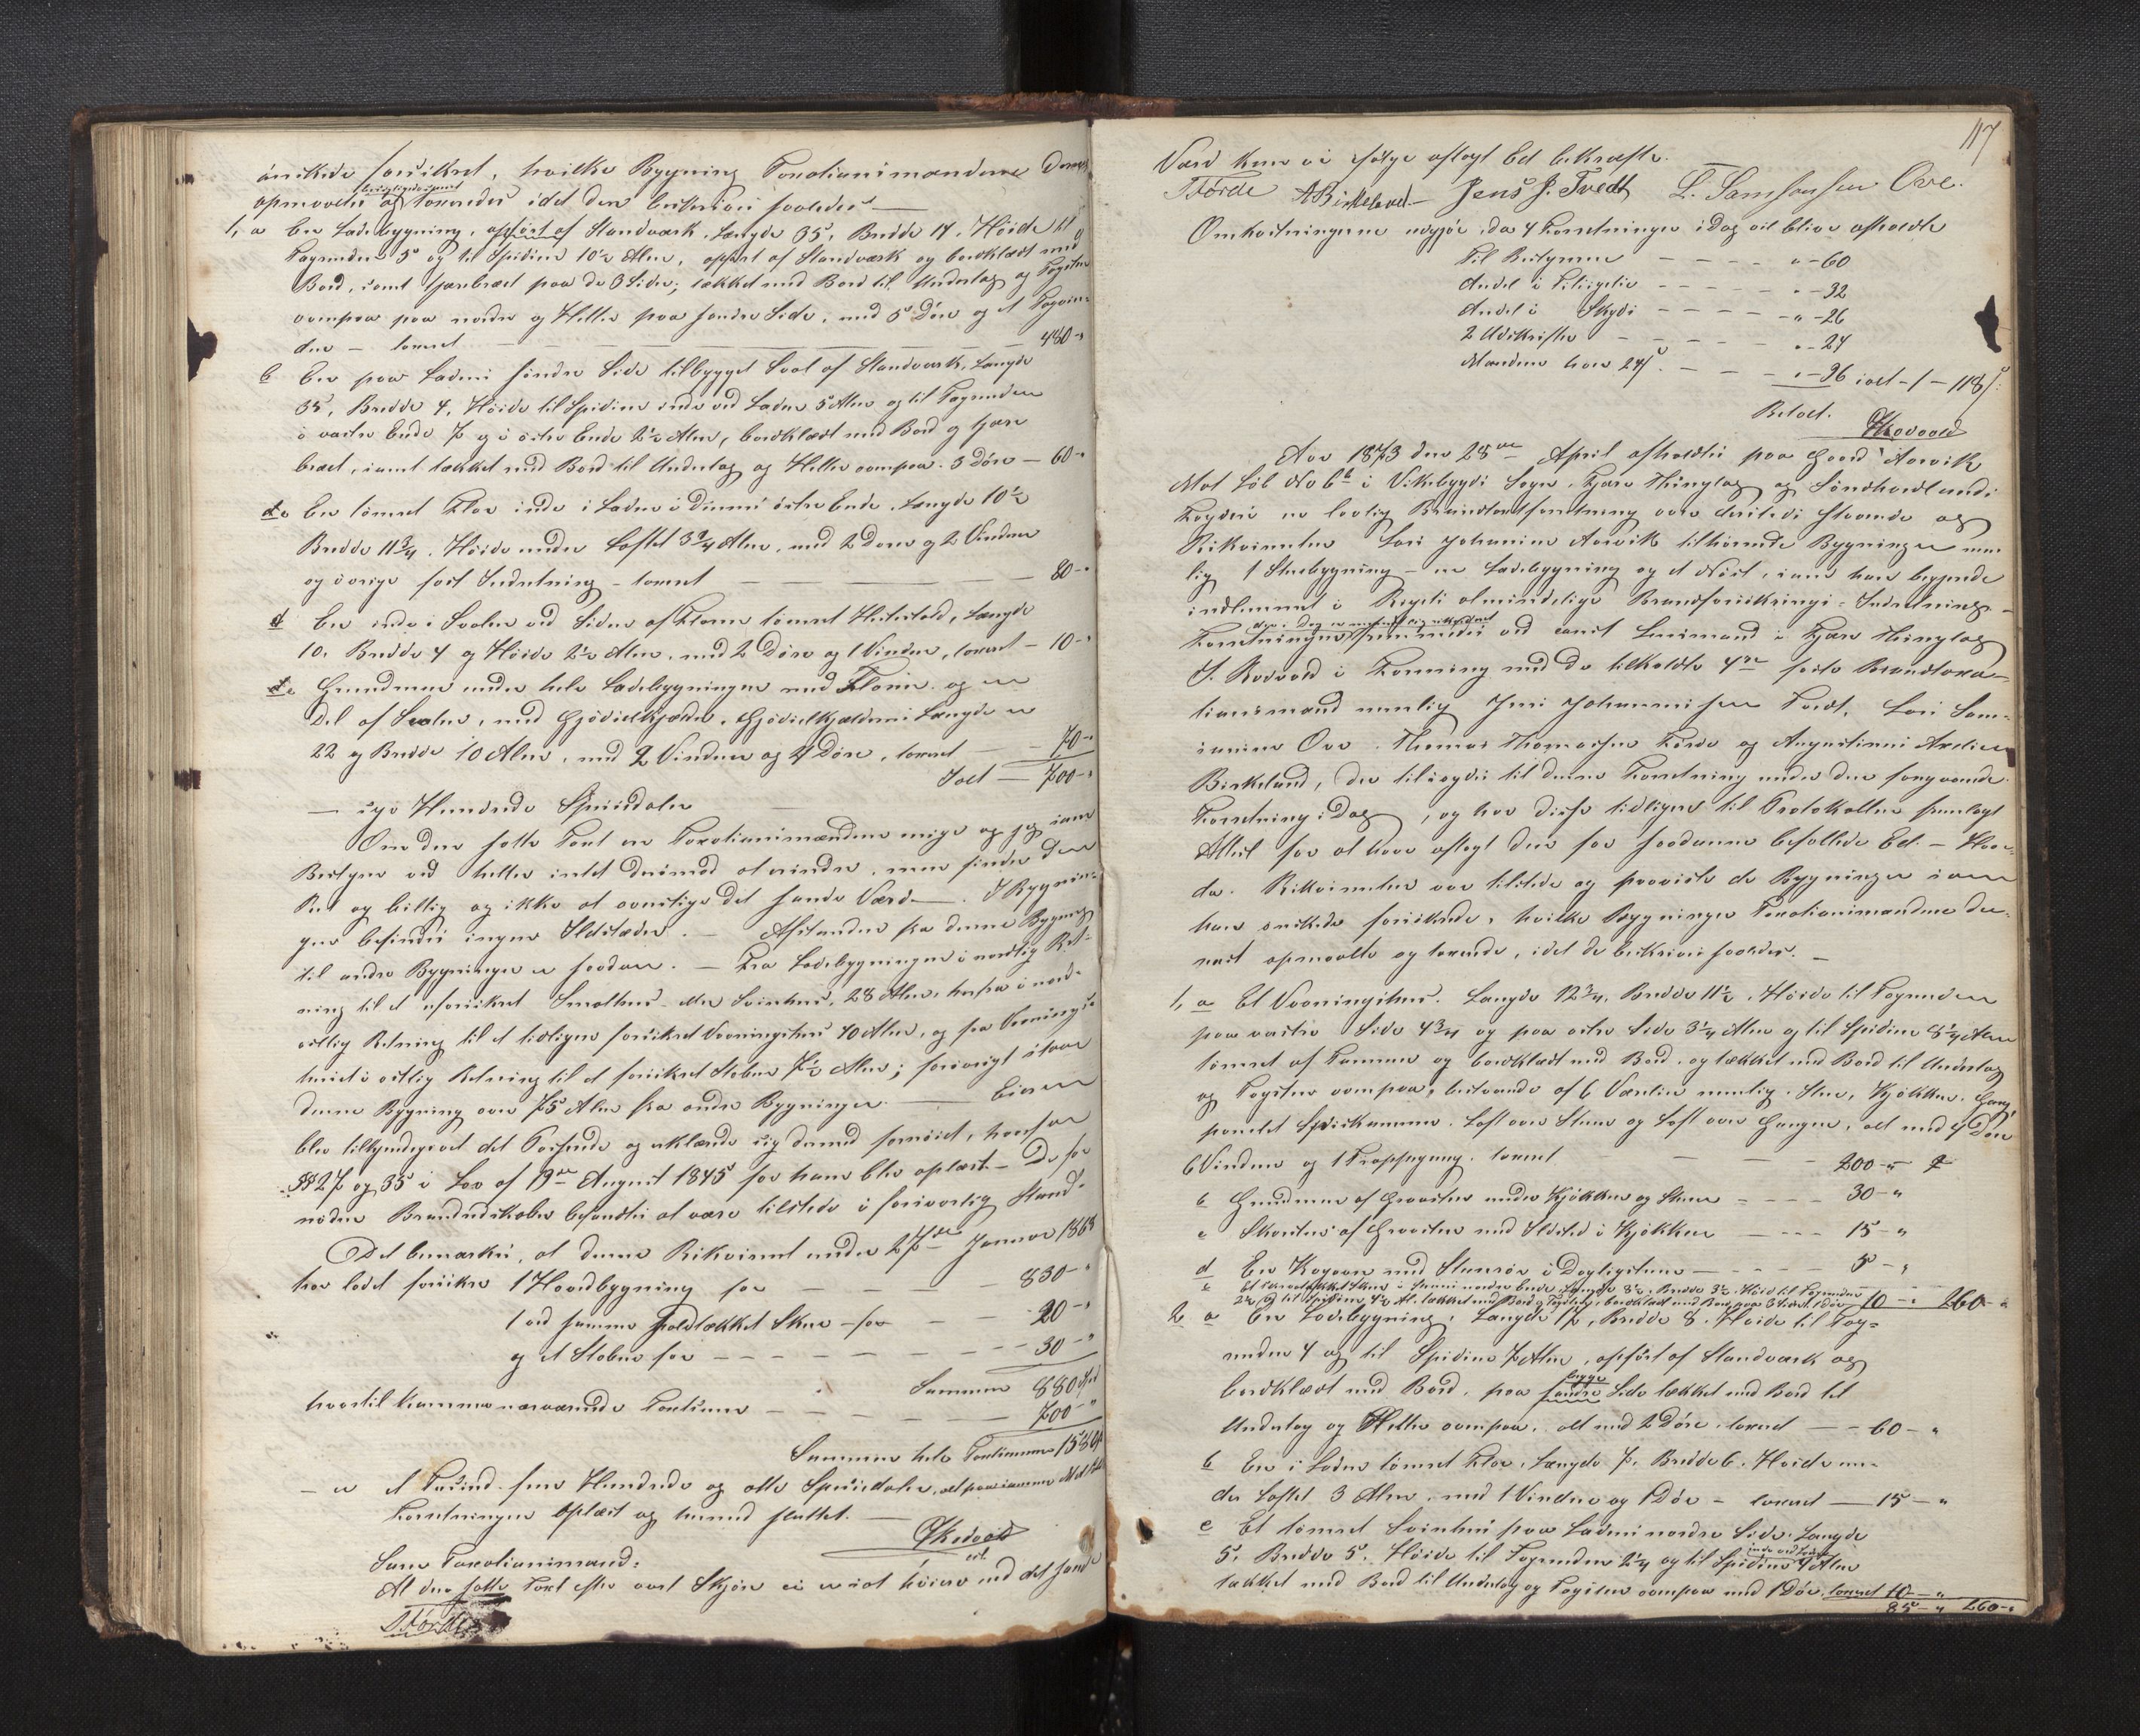 ønskede forsikret, hvilke Bygning Taxationsmændene
besigtigede samt
opmaalte og taxerede idet den beskrives saaledes —
1, a En Ladebygning, opført af Standværk, Længde 35, Bredde 17, Høide til
Tagrenden 5 og til Spidsen 10½ Alen, opført af Standværk og bordklædt med
Bord, samt tjærebræt paa de 3 Sider; tækket med Bord til Underlag og Tagsten
ovenpaa paa nordre og Heller paa søndre Side, med 5 Døre og et Tagvin-
due — taxeret — 480-"
b En paa Ladens søndre Side tilbygget Sval af Standværk, Længde
35, Bredde 4, Høide til Spidsen inde ved Laden 5 Alen og til Tagrenden
i vestre Ende 7 og i østre Ende 2½ Alen, bordklædt med Bord og tjære-
bræt, samt tækket med Bord til Underlag og Heller ovenpaa. 3 Døre — 60-"
c En tømret Flor inde i Laden i dennes østre Ende. Længde 10½
Bredde 11¾. Høide under Loftet 3¾ Alen, med 2 Døre og 2 Vinduer
og øvrige fast Indretning – taxeret — 80-"
d En inde i Svalen ved Siden af Floren tømret Hestestald, Længde
10. Bredde 4 og Høide 2½ Alen, med 2 Døre og 1 Vindue, taxeret – 10-"
e Grundmure under hele Ladebygningen med Floren og en
Del af Svalen, med Gjødselkjælder. Gjødselkjælderens Længde er
22 og Bredde 10 Alen, med 2 Vinduer og 4 Døre, taxeret — 70-"
Ialt — 700-"
— syv Hundrede Speciedaler
Om den satte Taxt er Taxationsmændene enige og jeg som
Bestyrer ved heller intet derimod at erindre, men finder den
Ret og billig og ikke at overstige det sande Værd —. I Bygnin-
gen befindes ingen Ildsteder. — Afstanden fra denne Bygning
til andre Bygninger er saadan. — Fra Ladebygningen i nordlig Ret-
ning til et uforsikret Smalehus eller Svinhus, 28 Alen, herfra i nord-
østlig Retning til et tidligere forsikret Vaaningshus 40 Alen, og fra Vaanings-
huset i østlig Retning til et forsikret Stabur 7½ Alen; forøvrigt staar
denne Bygning over 75 Alen fra andre Bygninger. — Eieren
blev tilkjendegivet det Passerede og erklærede sig dermed fornøiet, hvorfor
§§ 27 og 35 i Lov af 19de August 1845 for ham blev oplæst — De for-
nødne Brandredskaber befandtes at være tilstede i forsvarlig Stand.
Det bemærkes, at denne Rekvirent under 27de Januar 1868
har ladet forsikre 1 Hovedbygning for — 830-"
1 ved samme Halvtækket Skur for — 20-"
og et Stabur for — 30-"
Summen 880 Spd
hvortil kommer nærværende Taxtsum — 700-"
Summen hele Taxtsummen 1580
— er et Tusind fem Hundrede og otte Speciedaler, alt paa samme Matr
Forretningen Oplæst og hermed sluttet. —
JRødvold
Som Taxationsmænd:
At den satte Taxt efter vort Skjøn ei er sat høiere end det sande
TFörde
117
Værd kan vi ifølge aflagt Ed bekræfte.
TFörde ABirkeland — Jens J. Tvedt L. Samsonsen Øvre.
Omkostningerne udgjør, da 4 Forretninger idag vil blive afholdte
Til Bestyreren — "-60
Andel i Tilsigelse — "-32
Andel i Skyds — "-26
2 Udskrifter — "-24
Mændene hver 24 ß — "-96 ialt -1-118 ß.
Betalt.
JRødvold
Aar 1873 den 28de April afholdtes paa Gaard Aarvik
Mat Løb No 6b i Vikebygds Sogn, Fjære Thinglag og Søndhordlands
Fogderi en lovlig Brandtaxtforretning over dersteds staaende og
Rekvirenten Lars Johannesen Aarvik tilhørende Bygninger nem-
lig 1 Stuebygning – en Ladebygning og et Nøst, som han begjærede
indlemmet i Rigets almindelige Brandforsikrings-Indretning –
Forretningen ved const Lensmand i Fjære Thinglag
J. Rødvold i Forening med de tilkaldte 4re faste Brandtaxa-
tionsmænd nemlig Jens Johannessen Tvedt, Lars Sam-
sonsen Øvre. Thomas Thomassen Förde og Augustinus Andersen
Birkeland, der tilsagdes til denne Forretning under den foregaaende
Forretning i Dag, og har disse tidligere til Protokollen fremlagt
Attest for at have aflagt den for saadanne befalede Ed. – Hver-
da. Rekvirenten var tilstede og paaviste de Bygninger som
han ønskede forsikrede, hvilke Bygninger Taxationsmændene der-
næst opmaalte og taxerede, idet de beskrives saaledes. —
1, a Et Vaaningshus. Længde 12¾, Bredde 11½, Høide til Tagrenden
paa vestre Side 4¾ og paa østre Side 3¼ Alen og til Spidsen 8¼ Alen
tømret af Tømmer og bordklædt med Bord, og tækket med Bord til Underlag
og Tagsten ovenpaa, bestaaende af 6 Værelser nemlig: Stue, Kjøkken, Gang,
panelet Spiskammer. Loft over Stuen og Loft over Gangen, alt med 4 Døre
6 Vinduer og 1 Trappegang, taxeret — 200-"
b Grundmur af Graasten under Kjøkken og Stue — 30-"
c Skorsten af Graasten med Ildsted i Kjøkken — 15-"
d En Kogeovn med Stenrør i Dagligstuen — 5-"
e Et Skur i Husets nordre Ende, Længde 3½, Bredde 3½, Høide til Tagrenden
2¼ og til Spidsen 4½ Al. tækket med Bord og Tagsten, bordklædt med Bord paa 3 Sider, 1 Dør 10-" 260-"
2 a En Ladebygning, Længde 17, Bredde 8, Høide til Tag-
renden 4 og til Spidsen 7 Alen, opført af Standværk og
begge
bordklædt med Bord, paa søndre Side tækket med Bord til
Underlag og Heller ovenpaa, alt med 2 Døre, taxeret — 60-"
b En i Laden tømret Flor, Længde 7, Bredde 6, Høide un-
der Loftet 3 Alen, med 1 Vindue og 1 Dør – taxeret — 15-"
c Et tømret Svinhus paa Ladens nordre Side. Længde
5, Bredde 5, Høide til Tagrenden 2¼ og til Spidsen inde ved Laden 4 Alen
tækket med Bord til Underlag og Tagsten ovenpaa med 1 Dør, taxeret 10-"
85-" 260-"